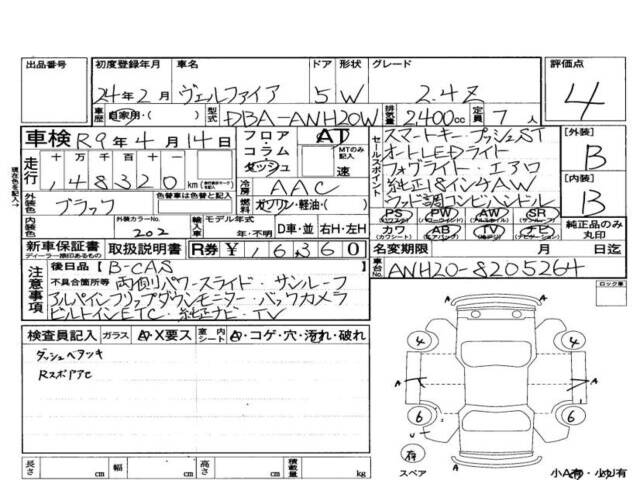 出品番号 初度登録年月 車名 ドア 形状 グレード 評価点
24年2月 ヴェルファイア 5 W 2.4Z 4
車歴 自家用・( ) 型式 DBA-ANH20W 排気量 2400cc 定員 7人
車検 R9年4月14日 フロア AT セールスポイント スマートキー プッシュST [外装] B
走行 十万千百十一 コラム MTのみ記入 オートLEDライト
148320 km ダッシュ 速 フォグライト・エアロ [内装] B
外装色 ブラック 色替車は色替と記入 冷房 AAC 純正18インチAW
内装色 外装カラーNo. 202 燃料 ガソリン・軽油・( ) ウッド調コンビハンドル
輸入車 モデル年式 年・不明 D車・並 右H・左H PS PW AW SR 純正品のみ丸印
カワ AB TV ナビ
新車保証書 取扱説明書 R券 ¥16360 名変期限 月 日迄
ディーラー捺印あるもの
注意事項 後日品 [B-CAS ] 車台No. ANH20-8205264
不具合箇所等 両側パワースライド・サンルーフ ロック車
アルパインフリップダウンモニター・バックカメラ
ビルトインETC・純正ナビ・TV
検査員記入 ガラス A・X要ス 室内シート A・コゲ・穴・汚れ・破れ
ダッシュベタツキ
Rスポドアセ
4 4
A A A
6 6
有
スペア A 小A有・小U有
長さ cm 幅 cm 高さ cm 積載量 kg
現在色を記入→